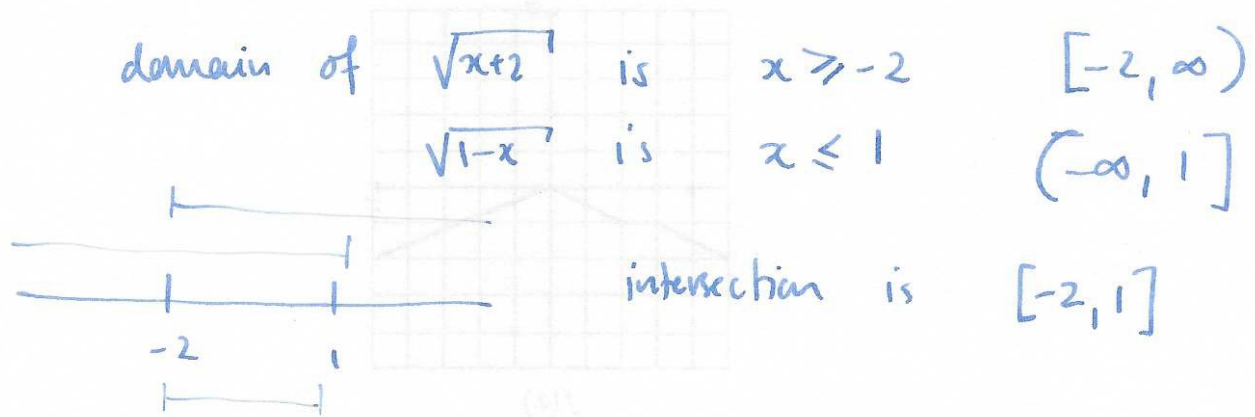 domain of √x+2 is x ≥ -2 [-2, ∞)
√1-x is x ≤ 1 (-∞, 1]
intersection is [-2, 1]
-2 1